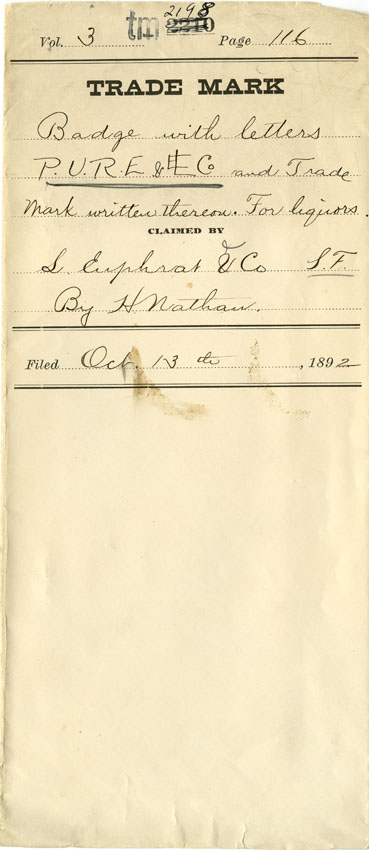 2198
Vol. 3 tm 2210 Page 116
TRADE MARK
Badge with letters
P.U.R.E & E Co and Trade
Mark written thereon. For liquors.
CLAIMED BY
S Euphrat & Co S.F.
By H Nathan.
Filed Oct. 13 th, 1892